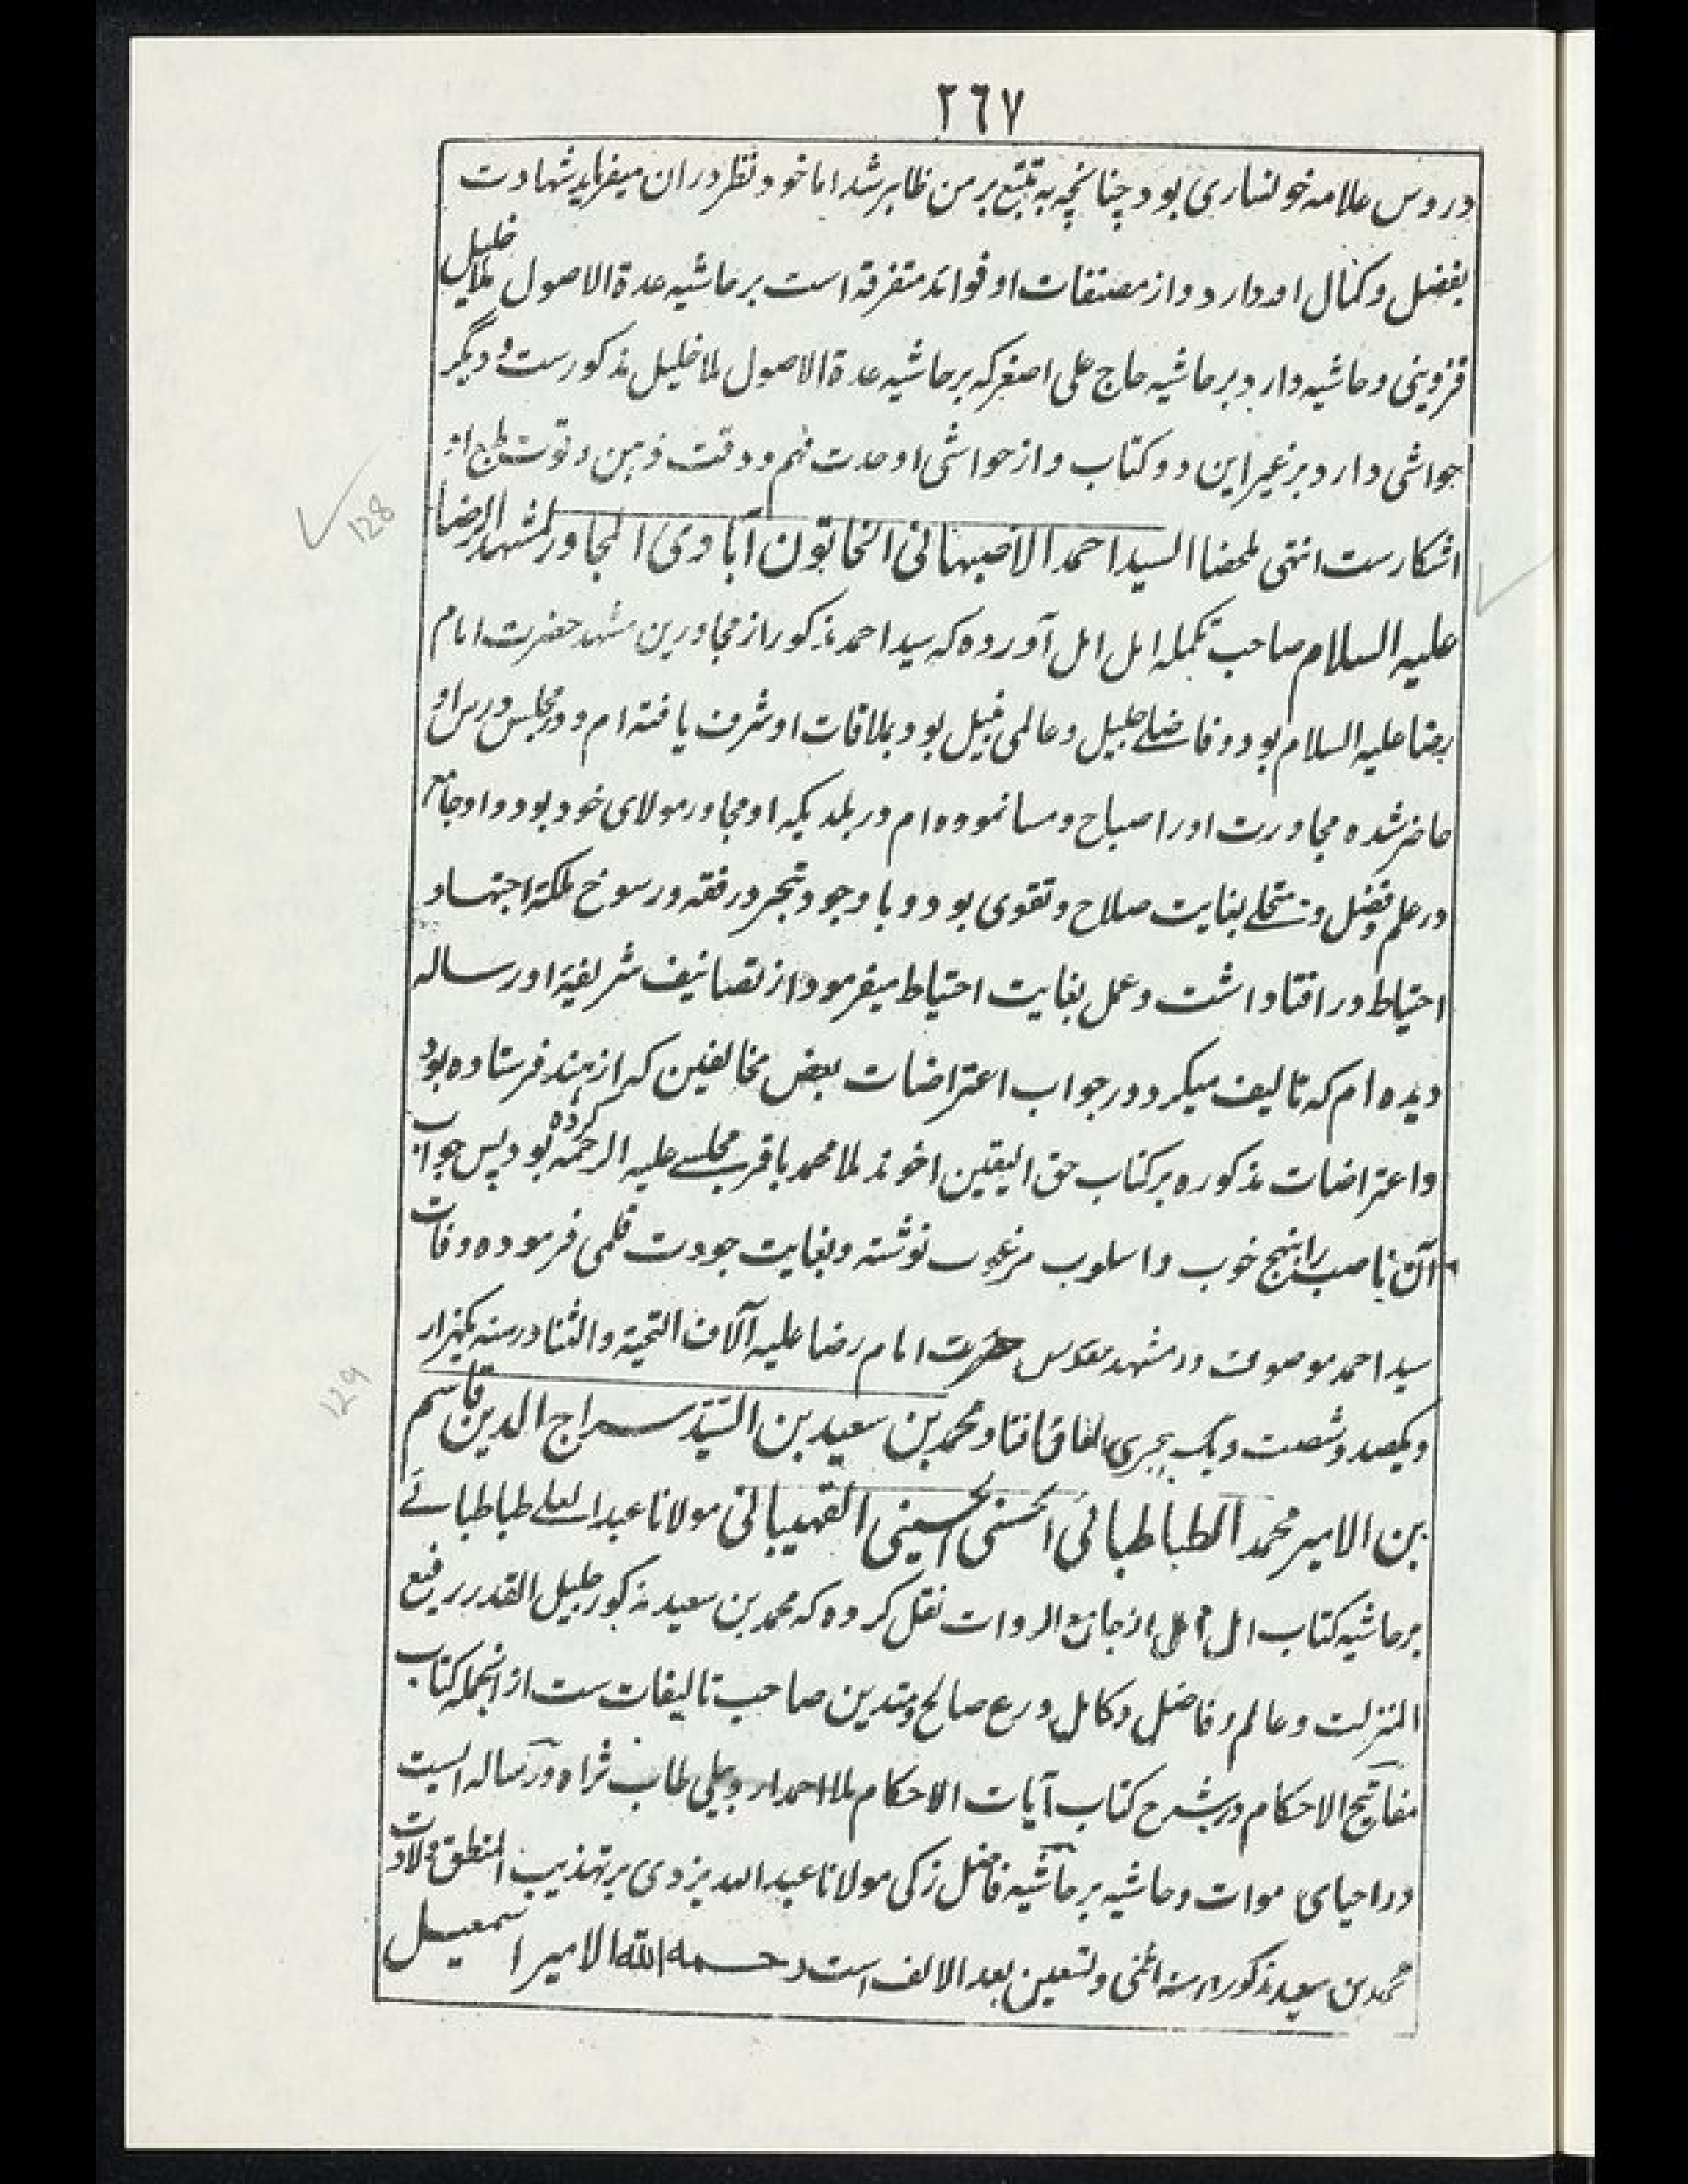 ٢٦٧
در درس علامه خونساری بود چنانچه به تتبع بر من ظاهر شد اما خود نظر در ان میفرماید شهادت
بفضل و کمال او دارد و از مصنفات او فوائد متفرقة است بر حاشیه عدة الاصول ملا خلیل
قزوینی و حاشیه دارد بر حاشیه حاج علی اصغر که بر حاشیه عدة الاصول ملا خلیل مذکورست و دیگر
حواشی دارد بر غیر این دو کتاب و از حواشی او حدت فهم و دقت ذهن و قوت طبع از
128
اشکارست انتهی ملخصا السید احمد الاصبهانی الخاتون آبادی المجاور لمشهد الرضا
علیه السلام صاحب تکمله امل امل آورده که سید احمد مذکور از مجاورین مشهد حضرت امام
رضا علیه السلام بود و فاضلے جلیل و عالمی نبیل بود بملاقات او شرف یافته ام و در مجلس درس او
حاضر شده مجاورت او را صباح و مسا نموده ام در بلدیکه او مجاور مولای خود بود و او جامع
در علم و فضل و متحلے بغایت صلاح و تقوی بود و با وجود تبحر در فقه و رسوخ ملکة اجتهاد
احتیاط در افتا داشت و عمل بغایت احتیاط میفرمود از تصانیف شریفة او رساله
دیده ام که تالیف میکرد در جواب اعتراضات بعض مخالفین که از هند فرستاده بود
و اعتراضات مذکوره بر کتاب حق الیقین اخوند ملا محمد باقر مجلسے علیه الرحمة کرده بود پس جواب
آن ناصب را بنهج خوب و اسلوب مرغوب نوشته و بغایت جودت قلمی فرموده وفات
سید احمد موصوف در مشهد مقدس حضرت امام رضا علیه آلاف التحیة و الثنا در سنه یکهزار
129
و یکصد و شصت و یک هجری اتفاق افتاد محمد بن سعید بن السیّد سراج الدین قاسم
بن الامیر محمد الطباطبائی الحسنی الحسینی القهیبائی مولانا عبد العلے طباطبائے
بر حاشیه کتاب امل امل از جامع الروات نقل کرده که محمد بن سعید مذکور جلیل القدر رفیع
المنزلت و عالم و فاضل و کامل و رع صالح و متدین صاحب تالیفات ست از انجمله کتاب
مفاتیح الاحکام در شرح کتاب آیات الاحکام ملا احمد اردبیلی طاب ثراه و رساله ایست
در احیای موات و حاشیه بر حاشیه فاضل زکی مولانا عبد الله یزدی بر تهذیب المنطق ولادت
محمد بن سعید مذکور در سنه اثنی و تسعین بعد الالف است رحمه الله الامیر اسمعیل